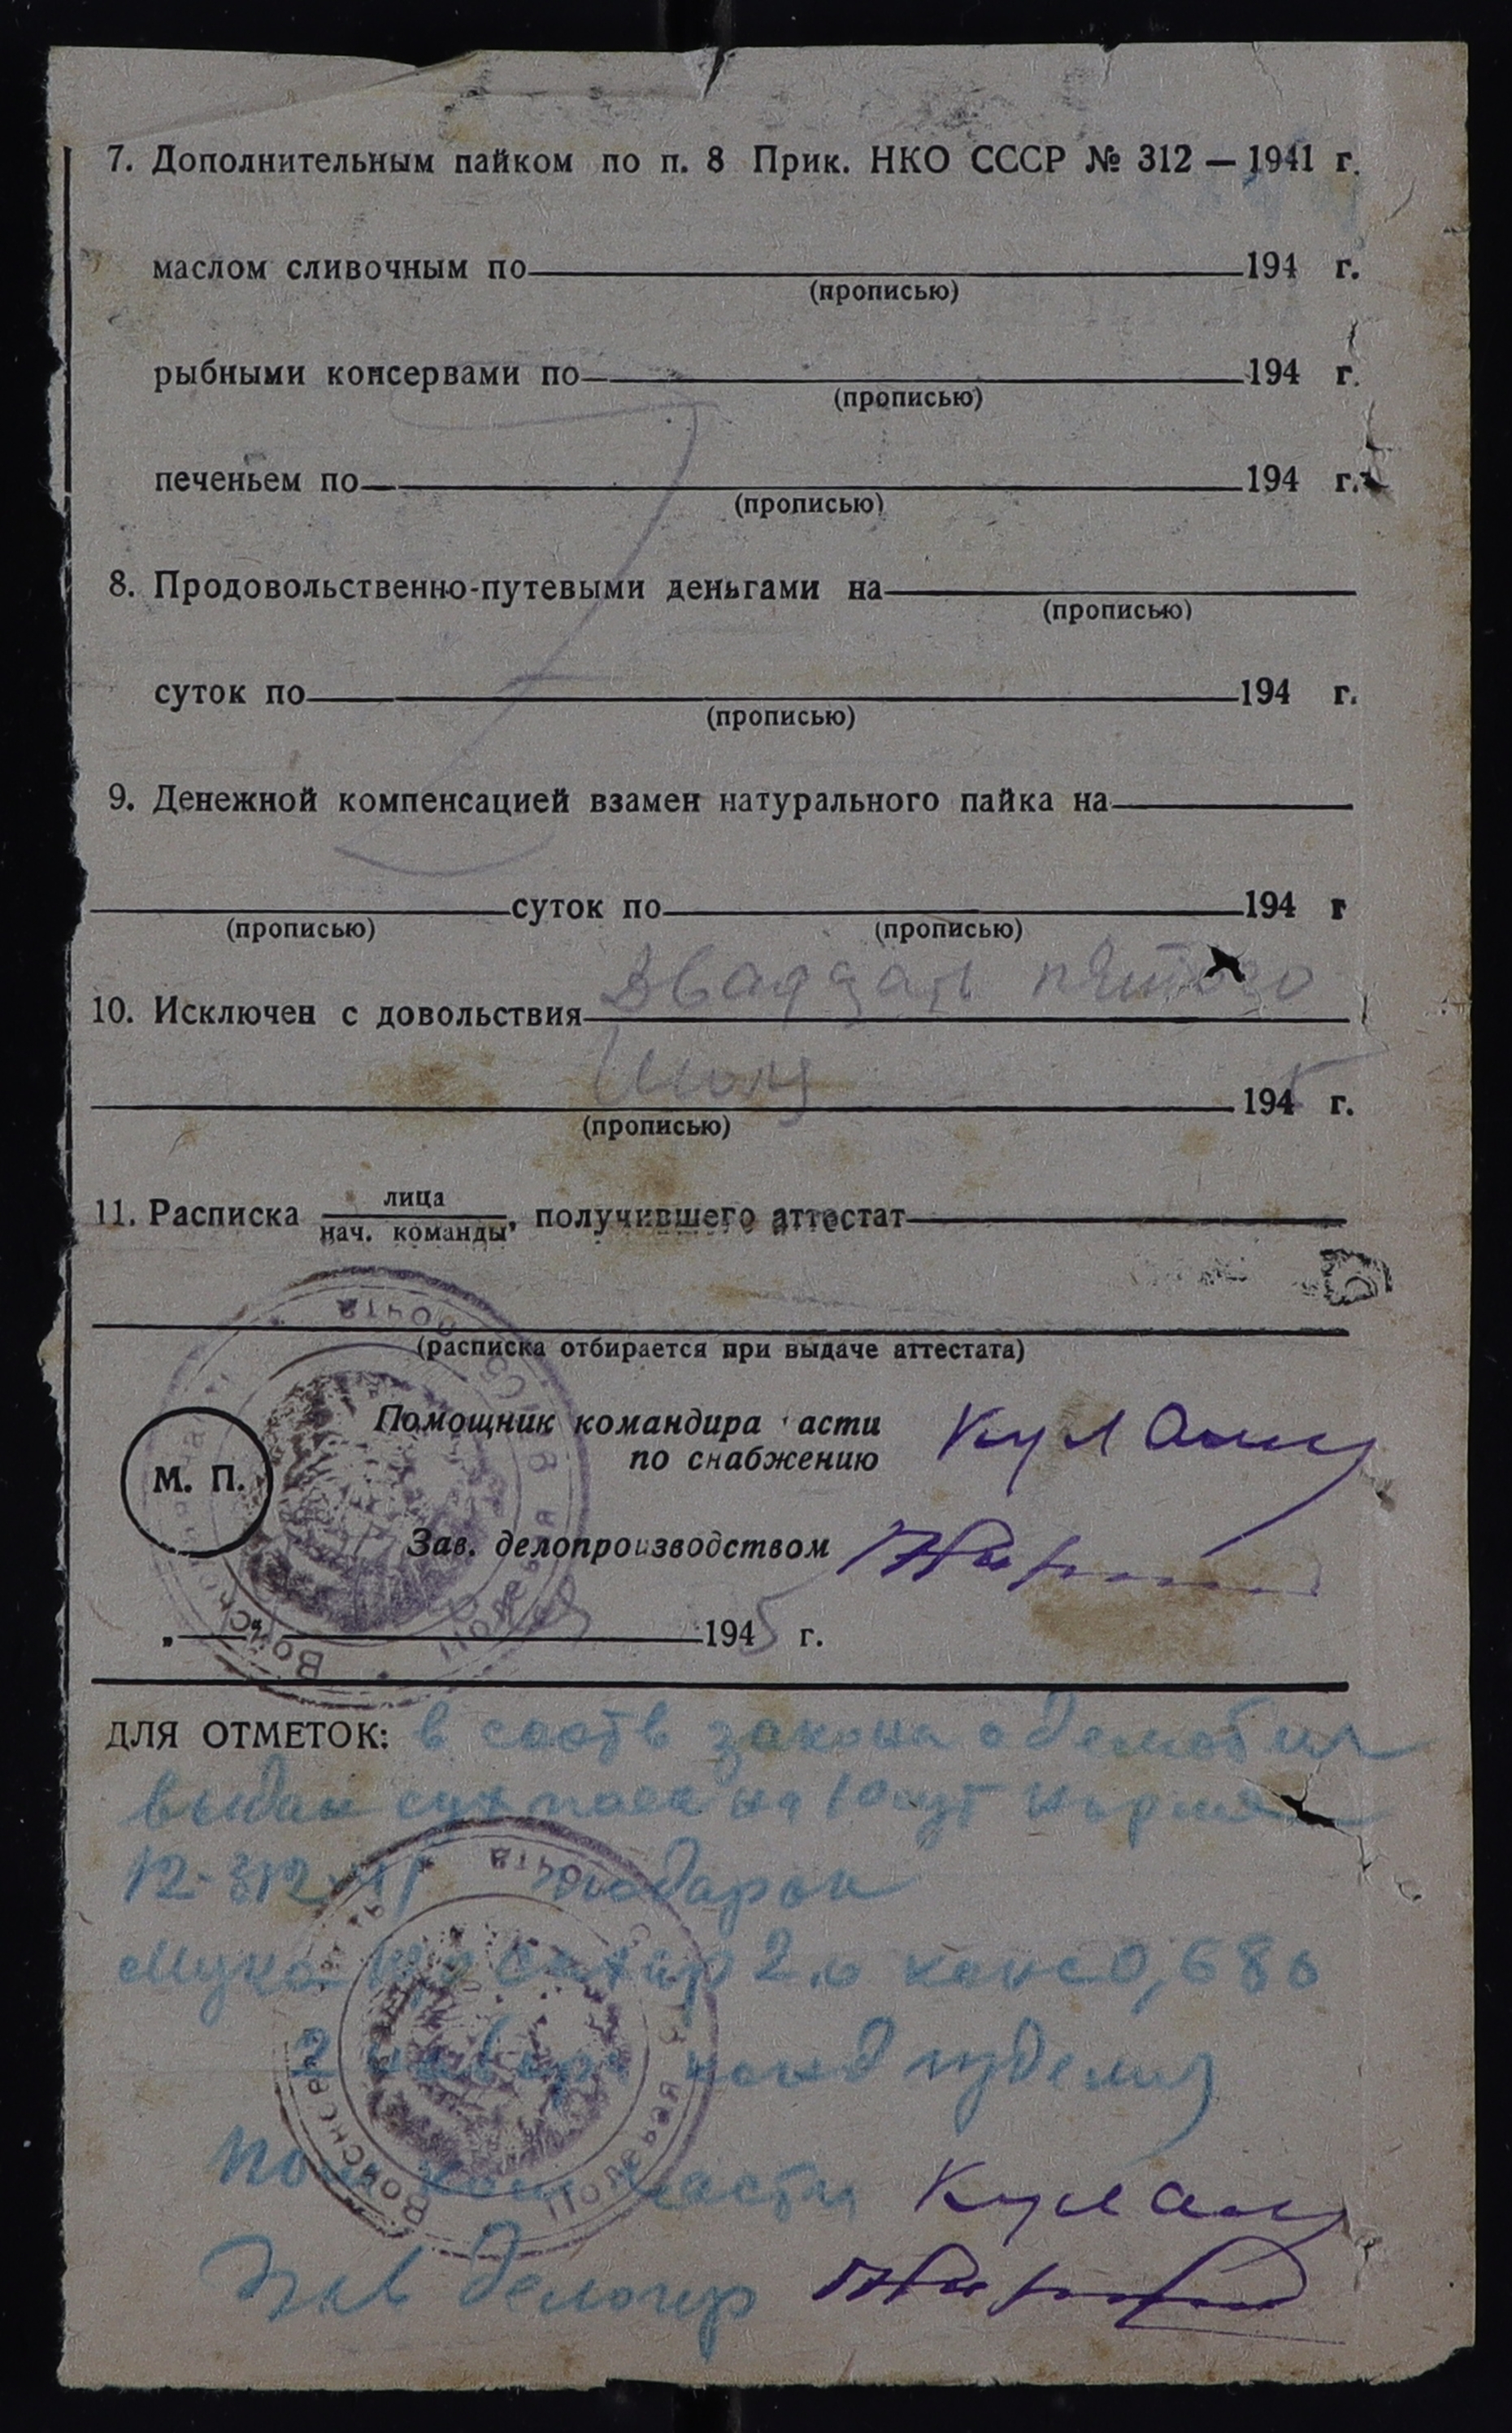 7. Дополнительным пайком по п. 8 Прик. НКО СССР № 312 — 1941 г.
маслом сливочным по 194 г.
(прописью)
рыбными консервами по 194 г.
(прописью)
печеньем по 194 г.
(прописью)
8. Продовольственно-путевыми деньгами на
(прописью)
суток по 194 г.
(прописью)
9. Денежной компенсацией взамен натурального пайка на
суток по 194 г
(прописью) (прописью)
10. Исключен с довольствия двадцать пятого
Июля 1945 г.
(прописью)
11. Расписка лица / нач. команды, получившего аттестат
(расписка отбирается при выдаче аттестата)
Помощник командира асти
по снабжению
М. П.
Зав. делопроизводством
" " 1945 г.
ДЛЯ ОТМЕТОК: в соотв закона о демобил
выдан сухпаек на 10 сут
12-312-41 подарок
Мука Сахар 2.0 конс 0,680
конд изделия
Пом ком части
Зав делопр
Войсковая Полевая почта
Полевая почта